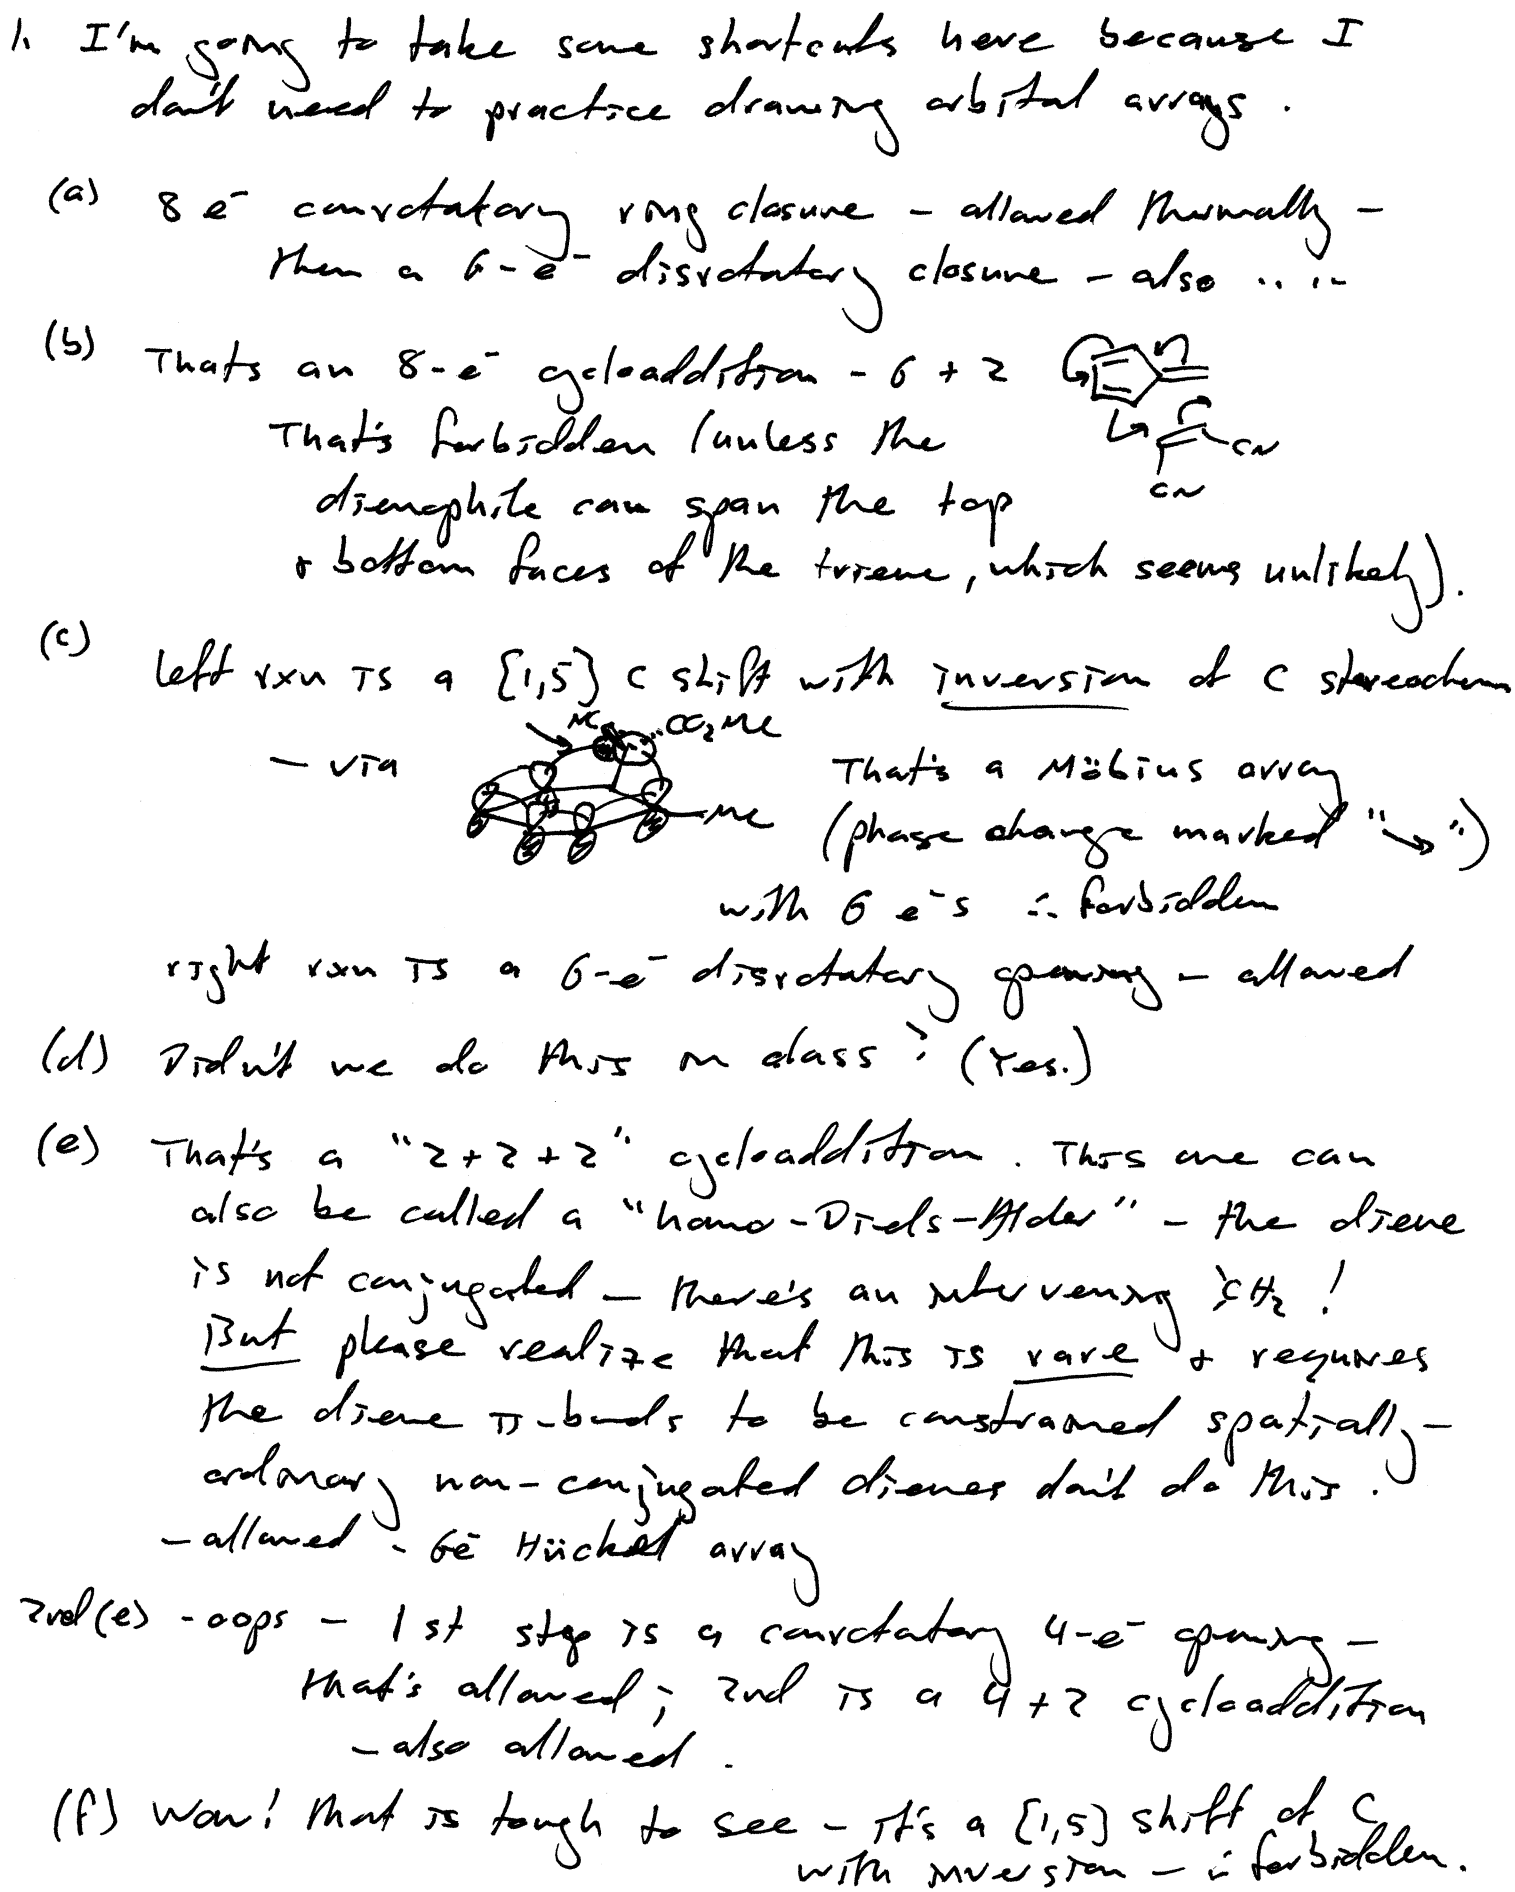 1. I'm going to take some shortcuts here because I
don't need to practice drawing orbital arrays.
(a) 8 e⁻ conrotatory ring closure - allowed thermally -
then a 6-e⁻ disrotatory closure - also .. ..
(b) Thats an 8-e⁻ cycloaddition - 6 + 2
That's forbidden (unless the
CN
dienophile can span the top
CN
& bottom faces of the triene, which seems unlikely).
(c) left rxn is a [1,5] C shift with inversion of C stereochem
NC CO₂Me
- via That's a Möbius array
Me (phase change marked "→")
with 6 e⁻s ∴ forbidden
right rxn is a 6-e⁻ disrotatory opening - allowed
(d) Didn't we do this in class? (Yes.)
(e) That's a "2+2+2" cycloaddition. This one can
also be called a "homo-Diels-Alder" - the diene
is not conjugated - there's an intervening CH₂!
But please realize that this is rare & requires
the diene π-bonds to be constrained spatially -
ordinary non-conjugated dienes don't do this.
- allowed - 6e⁻ Hückel array
2nd (e) - oops - 1st step is a conrotatory 4-e⁻ opening -
that's allowed; 2nd is a 4+2 cycloaddition
- also allowed.
(f) Wow! that is tough to see - it's a [1,5] shift of C
with inversion - ∴ forbidden.